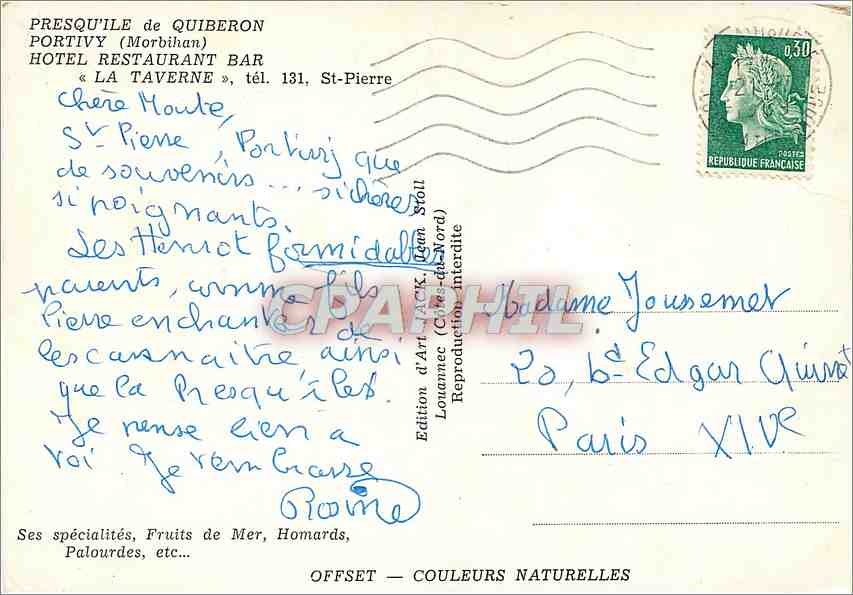 PRESQU'ILE de QUIBERON
PORTIVY (Morbihan)
HOTEL RESTAURANT BAR
« LA TAVERNE », tél. 131, St-Pierre
Chère Moute,
St Pierre, Portivy que
de souvenirs... si chères
si poignants.
Les Henriot formidables
parents, comme fils
Pierre enchanter de
les connaitre, ainsi
que la Presqu'îles.
Je pense bien a
toi. Je t'embrasse
Ses spécialités, Fruits de Mer, Homards,
Palourdes, etc...
Edition d'Art JACK, Jean Stoll
Louannec (Côtes-du-Nord)
Reproduction interdite
CPAPHIL
0,30
POSTES
REPUBLIQUE FRANÇAISE
Madame Joussemet
20, bd Edgar Quinet
Paris XIVe
OFFSET — COULEURS NATURELLES